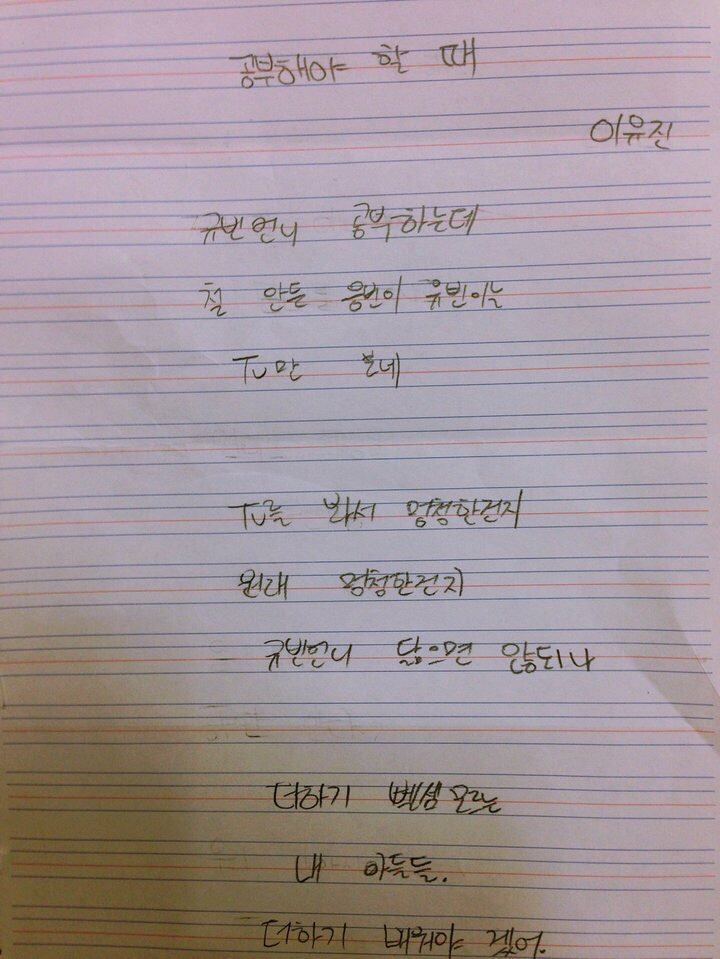 공부해야 할 때
이유진
규빈언니 공부하는데
철 안든 웅빈이 유빈이는
TV만 보네
TV를 봐서 멍청한건지
원래 멍청한건지
규빈언니 닮으면 않되나
더하기 뺄셈 모르는
내 아들들.
더하기 배워야 겠어.